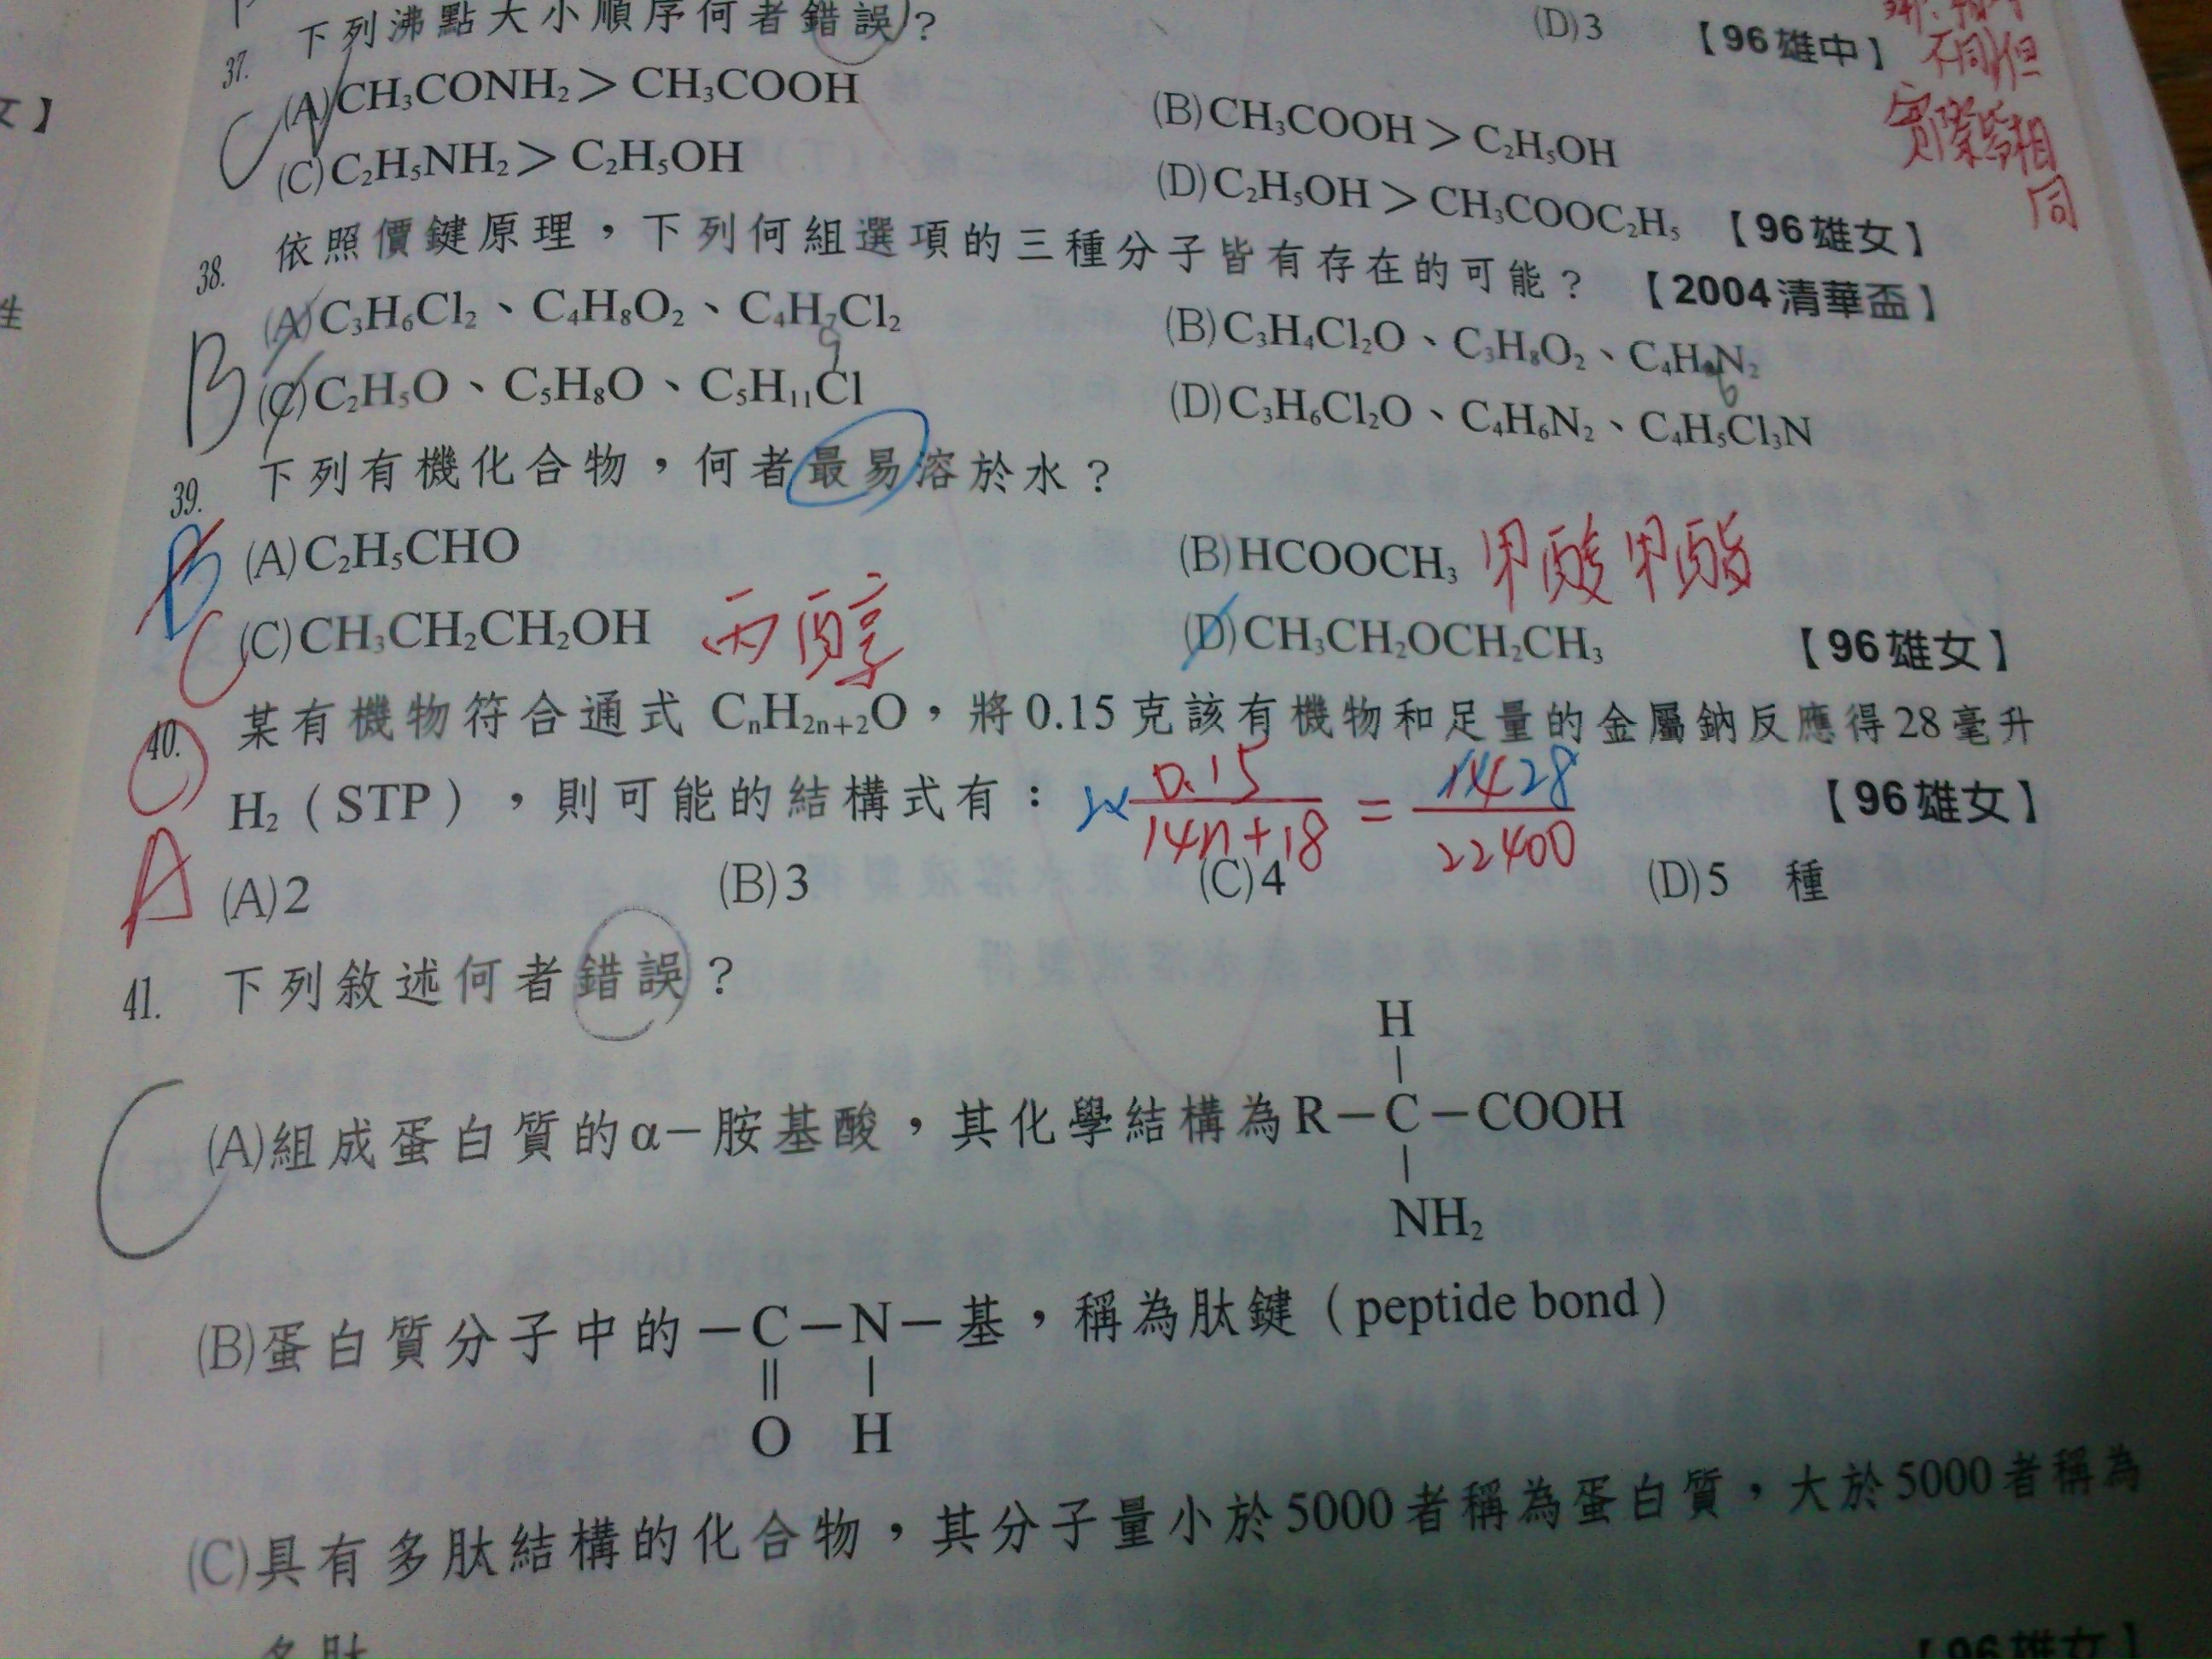 下列沸點大小順序何者錯誤？
(D)3 【96雄中】
不同但
實際皆相
同
女】
性
37.
C
(A)CH₃CONH₂＞CH₃COOH
(B)CH₃COOH＞C₂H₅OH
(C)C₂H₅NH₂＞C₂H₅OH
(D)C₂H₅OH＞CH₃COOC₂H₅ 【96雄女】
38. 依照價鍵原理，下列何組選項的三種分子皆有存在的可能？ 【2004清華盃】
B
(A)C₃H₆Cl₂、C₄H₈O₂、C₄H₇Cl₂
(B)C₃H₄Cl₂O、C₃H₈O₂、C₄H₈N₂
(C)C₂H₅O、C₅H₈O、C₅H₁₁Cl
9
6
(D)C₃H₆Cl₂O、C₄H₆N₂、C₄H₅Cl₃N
39. 下列有機化合物，何者最易溶於水？
B
(A)C₂H₅CHO
(B)HCOOCH₃ 甲酸甲酯
C
(C)CH₃CH₂CH₂OH 丙醇
(D)CH₃CH₂OCH₂CH₃ 【96雄女】
40. 某有機物符合通式 CₙH₂ₙ₊₂O，將0.15克該有機物和足量的金屬鈉反應得28毫升
H₂（STP），則可能的結構式有： 【96雄女】
0.15 28
14n+18 = 22400
A
(A)2 (B)3 (C)4 (D)5 種
41. 下列敘述何者錯誤？
C
H
(A)組成蛋白質的α－胺基酸，其化學結構為R－C－COOH
NH₂
(B)蛋白質分子中的－C－N－基，稱為肽鍵（peptide bond）
O H
(C)具有多肽結構的化合物，其分子量小於5000者稱為蛋白質，大於5000者稱為
多肽 【96雄女】